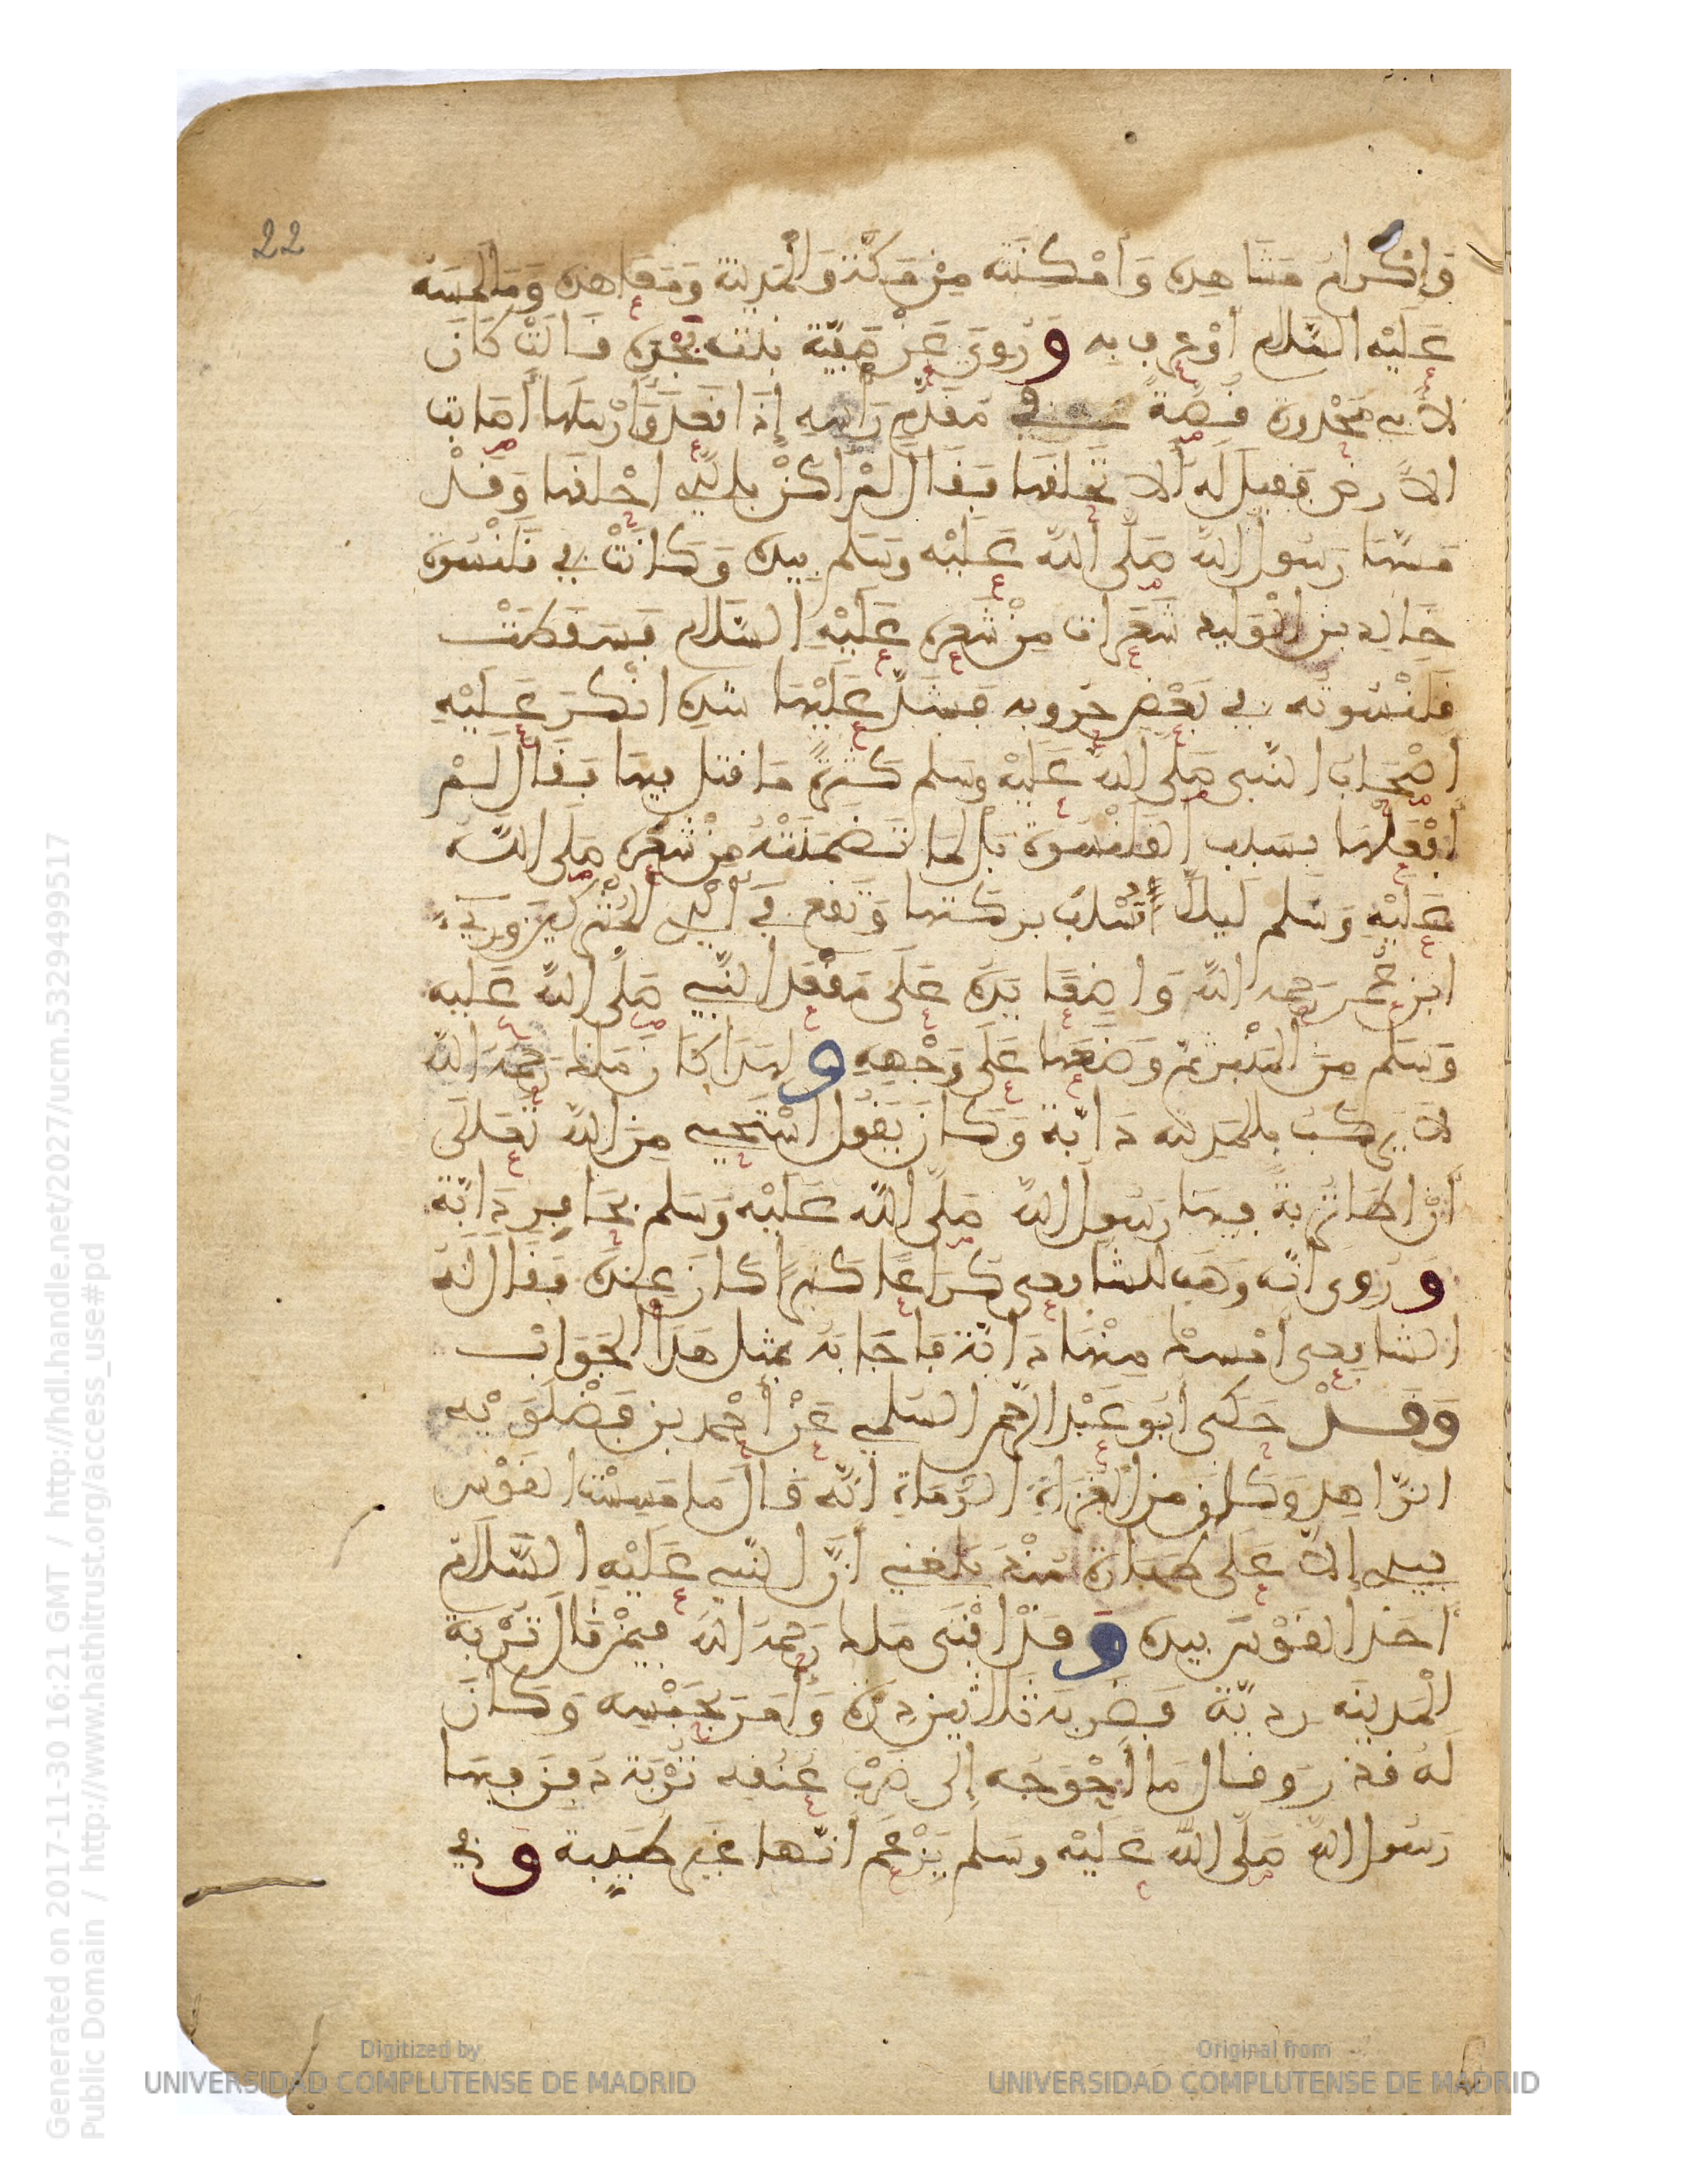 22
وَإِكْرَامُ مَشَاهِدِه وَأَمْكِنَتِه مِنْ مَكَّةَ وَالْمَدِينَة وَمَعَاهِدِه وَمَا لَمَسَهُ
عَلَيْه السَّلام أوْ عرف بِه وَرُوِيَ عَنْ صَفِيَّةَ بنت نَجْدَةَ قَالَتْ كَانَ
لأبي مَحْذورة قُصَّةٌ في مُقَدَّمِ رَأسِهِ إِذَا قعَدَ وَأَرْسَلَهَا أصَابت
الأرض فقيل لَه ألا تحْلقهَا فقَال لمْ أكنْ بالذِي احْلقهَا وَقَدْ
مَسّهَا رَسُول اللَّه صَلّى اللَّه عَلَيْه وَسَلم بيده وَكَانَتْ في قَلَنْسُوَة
خَالِد بن الْوَلِيد شعَرَات مِنْ شَعره عَلَيْهِ السَّلام فسَقطَتْ
قلَنْسُوته في بَعْضِ حروبه فشَدّ عَلَيْهَا شدة انْكَرَ عَلَيْهِ
اصْحَابُ النَّبى صَلى اللَّه عَلَيْه وسَلم كثْرَة مَا قتل فيهَا فقَال لَمْ
أفْعَلْهَا بسَبب القَلَنْسُوَة بَلْ لمَا تَضَمّنَتْهُ مِنْ شَعْرِهِ صَلى اللَّه
عَلَيْهِ وَسَلم ليلاّ أُسْلبَ بركتهَا وَتقع في أيْدِى المُشْركِينَ وَرِيءَ
ابن عُمَر رَحمه اللَّه وَاضِعًا يَدَهُ عَلَى مَقْعَد النَّبِي صَلّى اللَّه عَليه
وَسَلم مِنَ المنْبر ثمّ وَضَعَهَا عَلى وَجْهِهِ وَلهَذَا كَانَ مَالك رَحمَهُ اللَّه
لاَ يَرْكبُ بالمَدِينَه دَابّة وَكَانَ يَقُول اسْتَحيي مِنَ اللَّه تَعَلَى
أنْ اطَأ تُرْبةً فيهَا رَسُول اللَّه صَلّى اللَّه عَلَيْه وَسَلم بحَافِر دَابّة
وَرُوِى انّه وَهَب للشافِعِى كرَاعًا كثِيرًا كَانَ عِنْدَهُ فقَال لَه
الشافِعِى أمْسك مِنْهَا دَابّة فأجَابَهُ بمثل هَذَا الجَوَاب
وَقَدْ حَكَى أبو عَبْد الرّحمَن السّلمي عَنْ أحْمد بن فَضْلَوَيْه
الزّاهِد وَكَان مِن الغُزَاةِ الرُّمَاةِ انّه قَال مَا مَسِسْت القَوْس
بيدي إِلاّ عَلى طهَارة مُنْذ بَلغني أنّ النبي عَلَيْهِ السَّلاَم
أخذ القوْسَ بيده وَقَدْ افْتَى مَالك رَحمَه اللَّه فيمَنْ قَالَ تُرْبَة
الْمَدينَه رديّة فَضَرَبَهُ ثلاثين دِرّة وَأمَرَ بحَبْسِه وَكَانَ
لَه قدْرٌ وقال مَا أحْوَجَه إِلى ضرْب عُنُقه تُرْبَة دفِنَ فيهَا
رَسُول اللَّه صَلّى اللَّه عَلَيْه وسَلم يَزْعُمُ أنّها غير طَيّبة وَفي
Generated on 2017-11-30 16:21 GMT / http://hdl.handle.net/2027/ucm.5329499517
Public Domain / http://www.hathitrust.org/access_use#pd
Digitized by
UNIVERSIDAD COMPLUTENSE DE MADRID
Original from
UNIVERSIDAD COMPLUTENSE DE MADRID